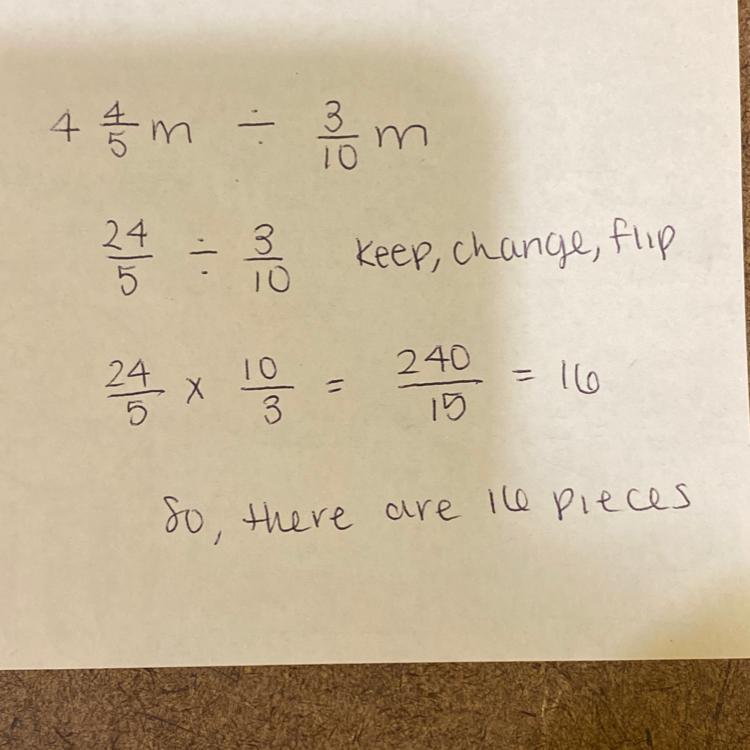 4 4/5 m ÷ 3/10 m
24/5 ÷ 3/10 keep, change, flip
24/5 x 10/3 = 240/15 = 16
So, there are 16 pieces